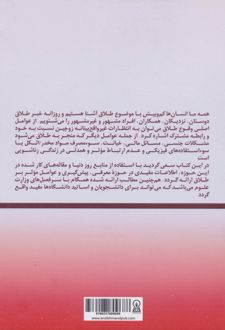 همه ما انسان‌ها کم‌وبیش با موضوع طلاق آشنا هستیم و روزانه خبر طلاق
دوستان، نزدیکان، همکاران، افراد مشهور و غیرمشهور را می‌شنویم. از عوامل
اصلی وقوع طلاق می‌توان به انتظارات غیرواقع‌بینانه زوجین نسبت به خود
و رابطه مشترک اشاره کرد. از جمله عوامل دیگری که منجر به طلاق می‌شود
مشکلات جنسی، مسائل مالی، خیانت، سوءمصرف مواد مخدر/الکل یا
سوءاستفاده‌های فیزیکی و عدم ارتباط مؤثر و همدلی در زندگی زناشویی
است
در این کتاب سعی گردید با استفاده از منابع روز دنیا و مقاله‌های کار شده در
این حوزه، اطلاعات مفیدی در حوزهٔ معرفی، پیش‌گیری و عوامل مؤثر بر
طلاق ارائه گردد. همچنین مطالب ارائه شده همگام با سرفصل‌های وزارت
علوم می‌باشد که می‌تواند برای دانشجویان و اساتید دانشگاه‌ها مفید واقع
گردد